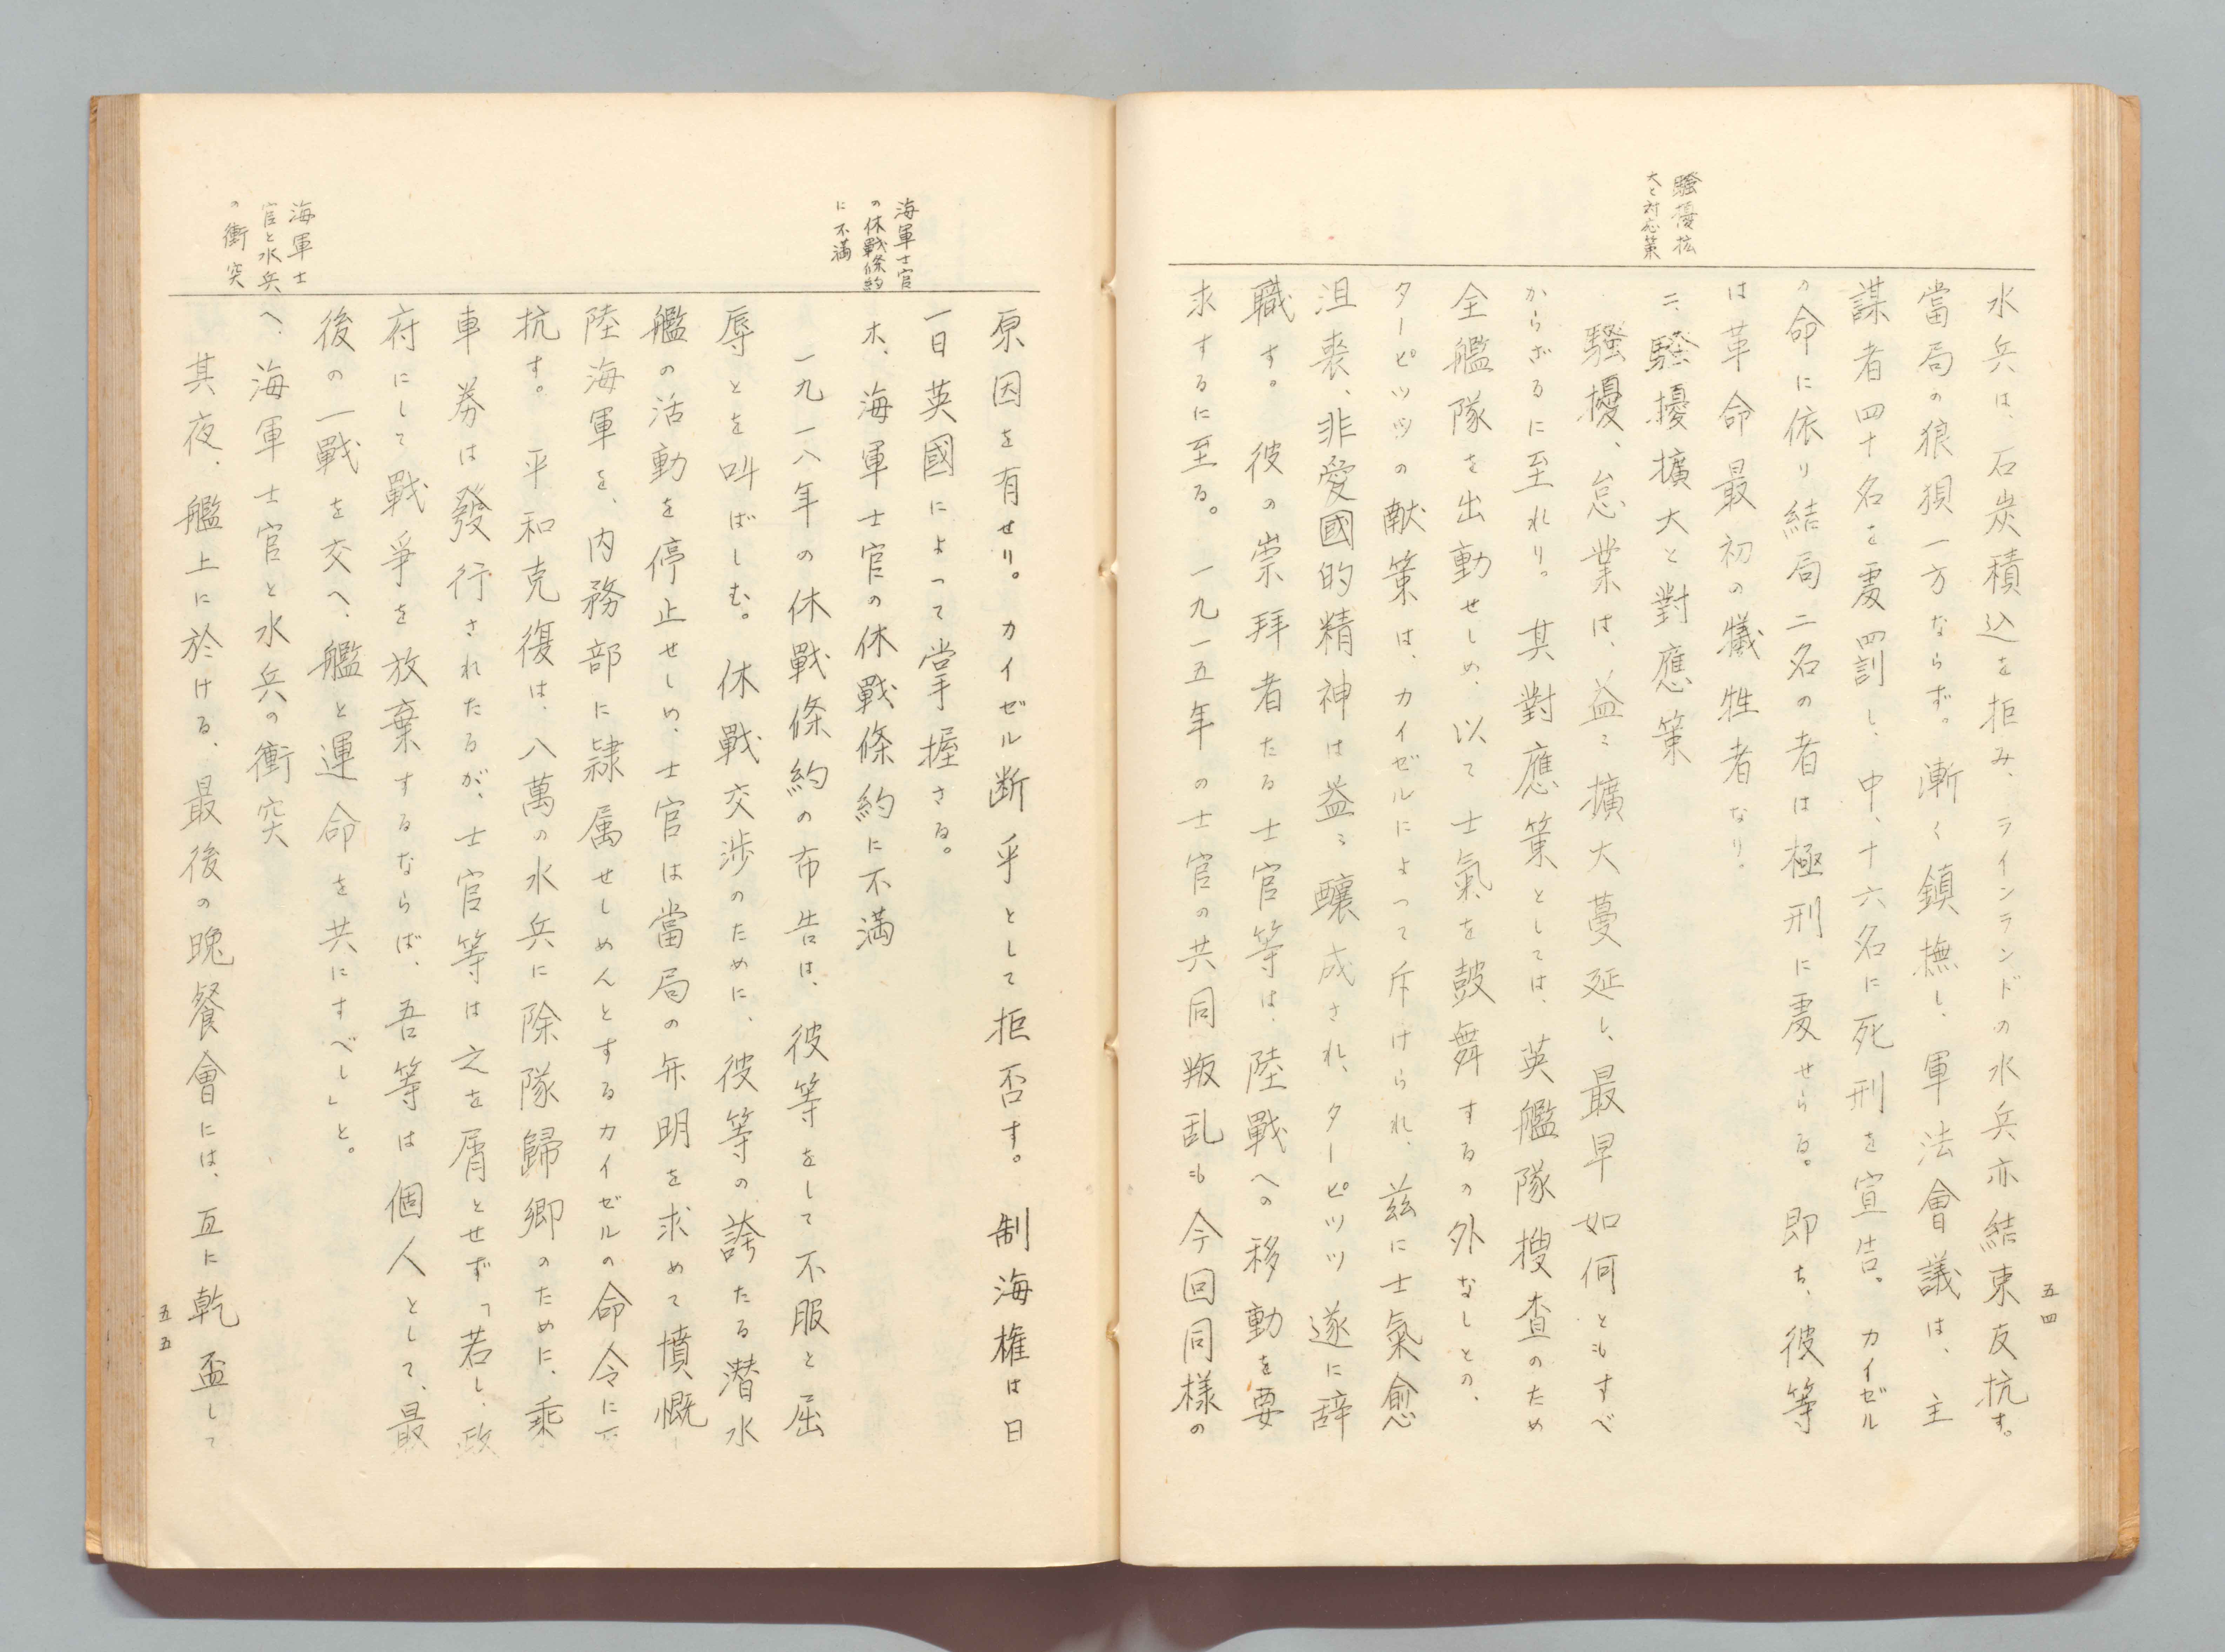 五四
騒擾拡
大と対応策
水兵は、石炭積込を拒み、ラインランドの水兵亦結束反抗す。
當局の狼狽一方ならず。漸く鎮撫し、軍法會議は、主
謀者四十名を處罰し、中、十六名に死刑を宣告。カイゼル
の命に依り結局二名の者は極刑に處せらる。即ち、彼等
は革命最初の犠牲者なり。
ニ、騒擾擴大と對應策
騒擾、怠業は、益〻擴大蔓延し、最早如何ともすべ
からざるに至れり。其對應策としては、英艦隊捜査のため
全艦隊を出動せしめ、以て士氣を鼓舞するの外なしとの、
ターピッツの献策は、カイゼルによって斥けられ、茲に士氣愈
沮喪、非愛國的精神は益〻醸成され、ターピッツ遂に辞
職す。彼の崇拜者たる士官等は、陸戰への移動を要
求するに至る。一九一五年の士官の共同叛乱も今回同様の
海軍士官
の休戰條約
に不満
海軍士
官と水兵
の衝突
原因を有せり。カイゼル断乎として拒否す。制海権は日
一日英國によって掌握さる。
ホ、海軍士官の休戰條約に不満
一九一八年の休戰條約の布告は、彼等をして不服と屈
辱とを叫ばしむ。休戰交渉のために、彼等の誇たる潜水
艦の活動を停止せしめ、士官は當局の弁明を求めて憤慨し
陸海軍を、内務部に隷属せしめんとするカイゼルの命令に反
抗す。平和克復は、八萬の水兵に除隊歸郷のために、乘
車券は發行されたるが、士官等は之を屑とせず「若し、政
府にして戰爭を放棄するならば、吾等は個人として、最
後の一戰を交へ、艦と運命を共にすべし」と。
ヘ、海軍士官と水兵の衝突
其夜、艦上に於ける、最後の晩餐會には、互に乾盃して
五五